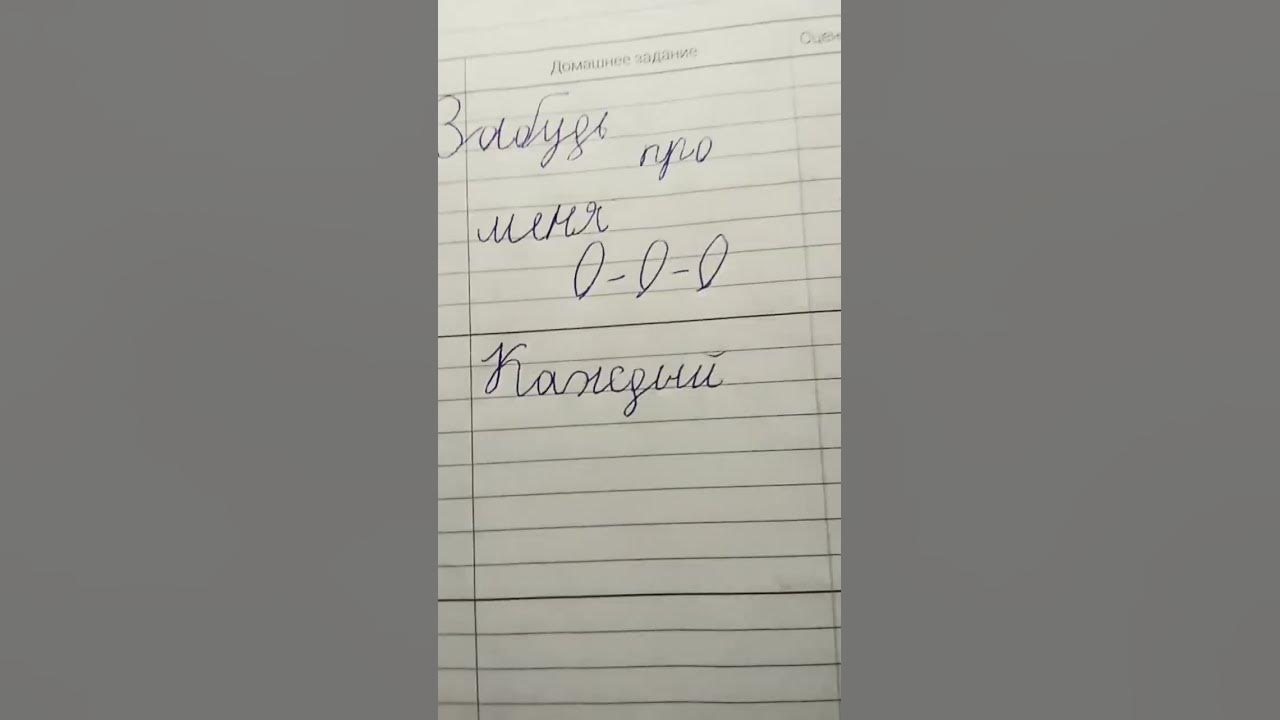 Домашнее задание
Оцен
Забудь про
меня
О-О-О
Каждый